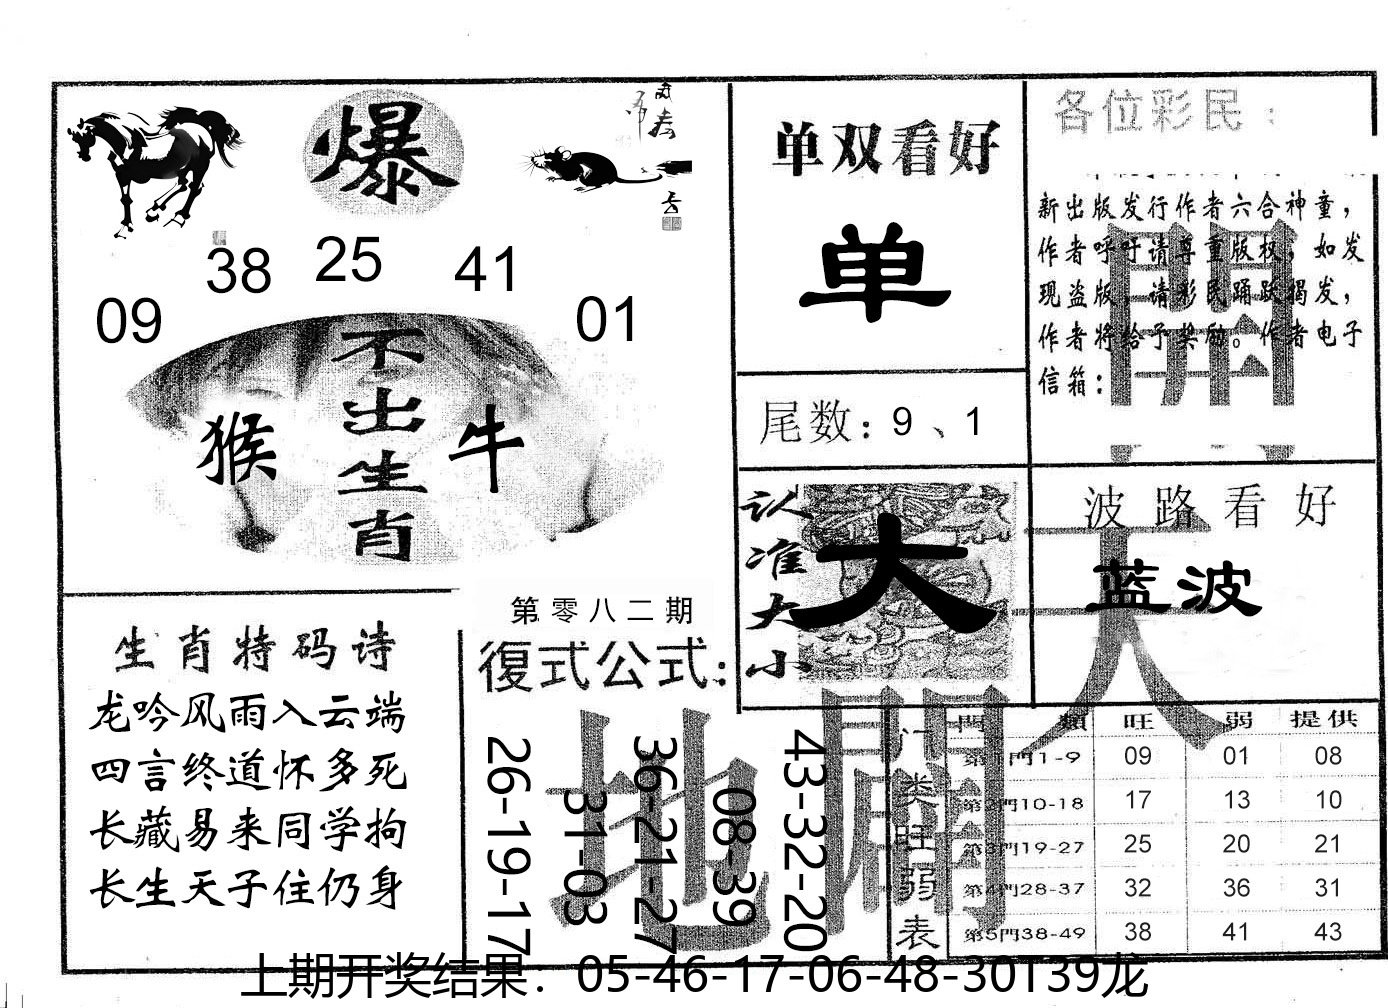 爆
38 25 41
09 01
不出生肖
猴 牛
单双看好
单
尾数：9、1
认准大小
大
各位彩民：
新出版发行作者六合神童，
作者呼吁请尊重版权，如发
现盗版，请彩民踊跃揭发，
作者将给予奖励。作者电子
信箱：
波路看好
蓝波
天
地
生肖特码诗
龙吟风雨入云端
四言终道怀多死
长藏易来同学拘
长生天子住仍身
第零八二期
復式公式：
26-19-17
31-03
36-21-27
08-39
43-32-20
门类旺弱表
門類 旺 弱 提供
第1門1-9 09 01 08
第2門10-18 17 13 10
第3門19-27 25 20 21
第4門28-37 32 36 31
第5門38-49 38 41 43
上期开奖结果：05-46-17-06-48-30T39龙